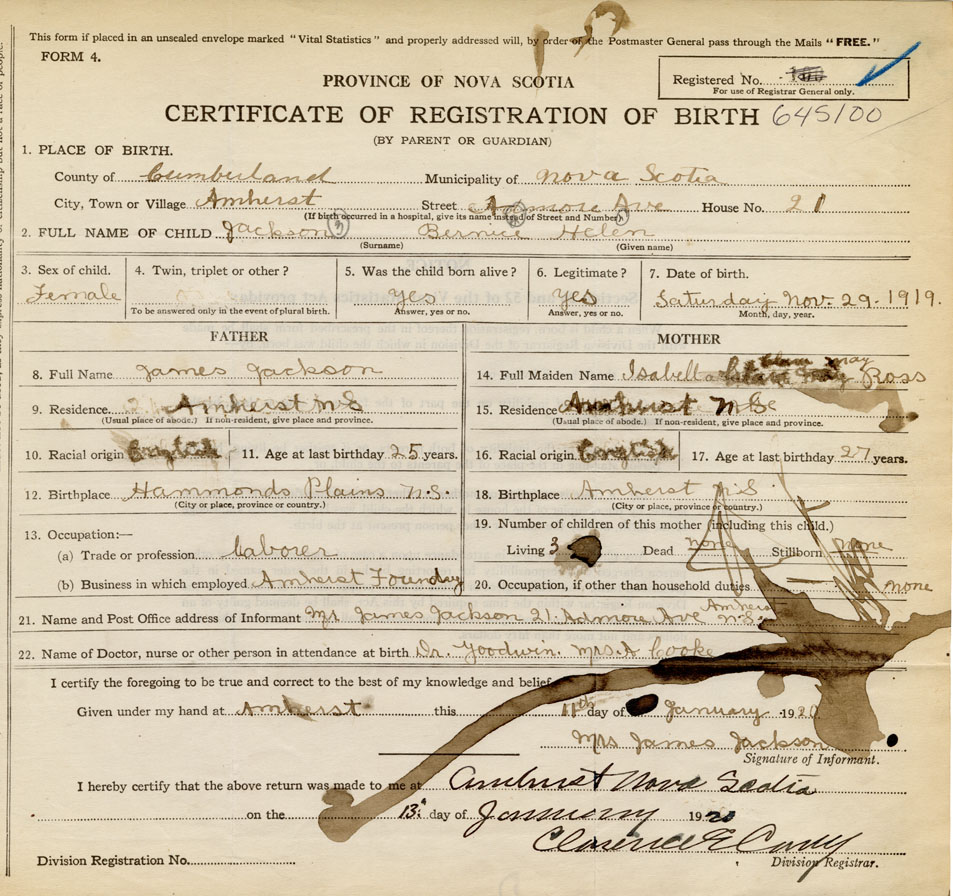 This form if placed in an unsealed envelope marked "Vital Statistics" and properly addressed will, by order of the Postmaster General pass through the Mails "FREE."
FORM 4.
PROVINCE OF NOVA SCOTIA
Registered No.
For use of Registrar General only.
CERTIFICATE OF REGISTRATION OF BIRTH 645100
(BY PARENT OR GUARDIAN)
1. PLACE OF BIRTH.
County of Cumberland Municipality of Nova Scotia
City, Town or Village Amherst Street Admore Ave House No. 21
(If birth occurred in a hospital, give its name instead of Street and Number)
2. FULL NAME OF CHILD Jackson Bernice Helen
(Surname) (Given name)
3. Sex of child. 4. Twin, triplet or other? 5. Was the child born alive? 6. Legitimate? 7. Date of birth.
Female yes yes Saturday Nov. 29. 1919.
To be answered only in the event of plural birth. Answer, yes or no. Answer, yes or no. Month, day, year.
FATHER
8. Full Name James Jackson
9. Residence Amherst N S
(Usual place of abode.) If non-resident, give place and province.
10. Racial origin English 11. Age at last birthday 25 years.
12. Birthplace Hammonds Plains N.S.
(City or place, province or country.)
13. Occupation:—
(a) Trade or profession Laborer
(b) Business in which employed Amherst Foundry
MOTHER
14. Full Maiden Name Isabella May Ross
15. Residence Amherst
(Usual place of abode.) If non-resident, give place and province.
16. Racial origin English 17. Age at last birthday 27 years.
18. Birthplace Amherst N S
(City or place, province or country.)
19. Number of children of this mother (including this child.)
Living 3 Dead none Stillborn none
20. Occupation, if other than household duties none
21. Name and Post Office address of Informant Mr James Jackson 21. Admore Ave Amherst N.S.
22. Name of Doctor, nurse or other person in attendance at birth Dr. Goodwin. Mrs. A Cooke
I certify the foregoing to be true and correct to the best of my knowledge and belief
Given under my hand at Amherst this 11th day of January 1920
Mrs James Jackson
Signature of Informant.
I hereby certify that the above return was made to me at Amherst Nova Scotia
on the 13. day of January 1920
Clarence E
Division Registration No. Division Registrar.